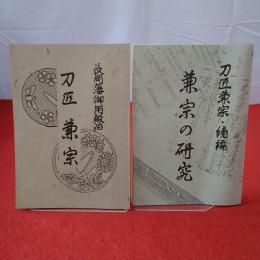 長岡藩御用鍛冶
刀匠 兼宗
刀匠兼宗・続編
兼宗の研究